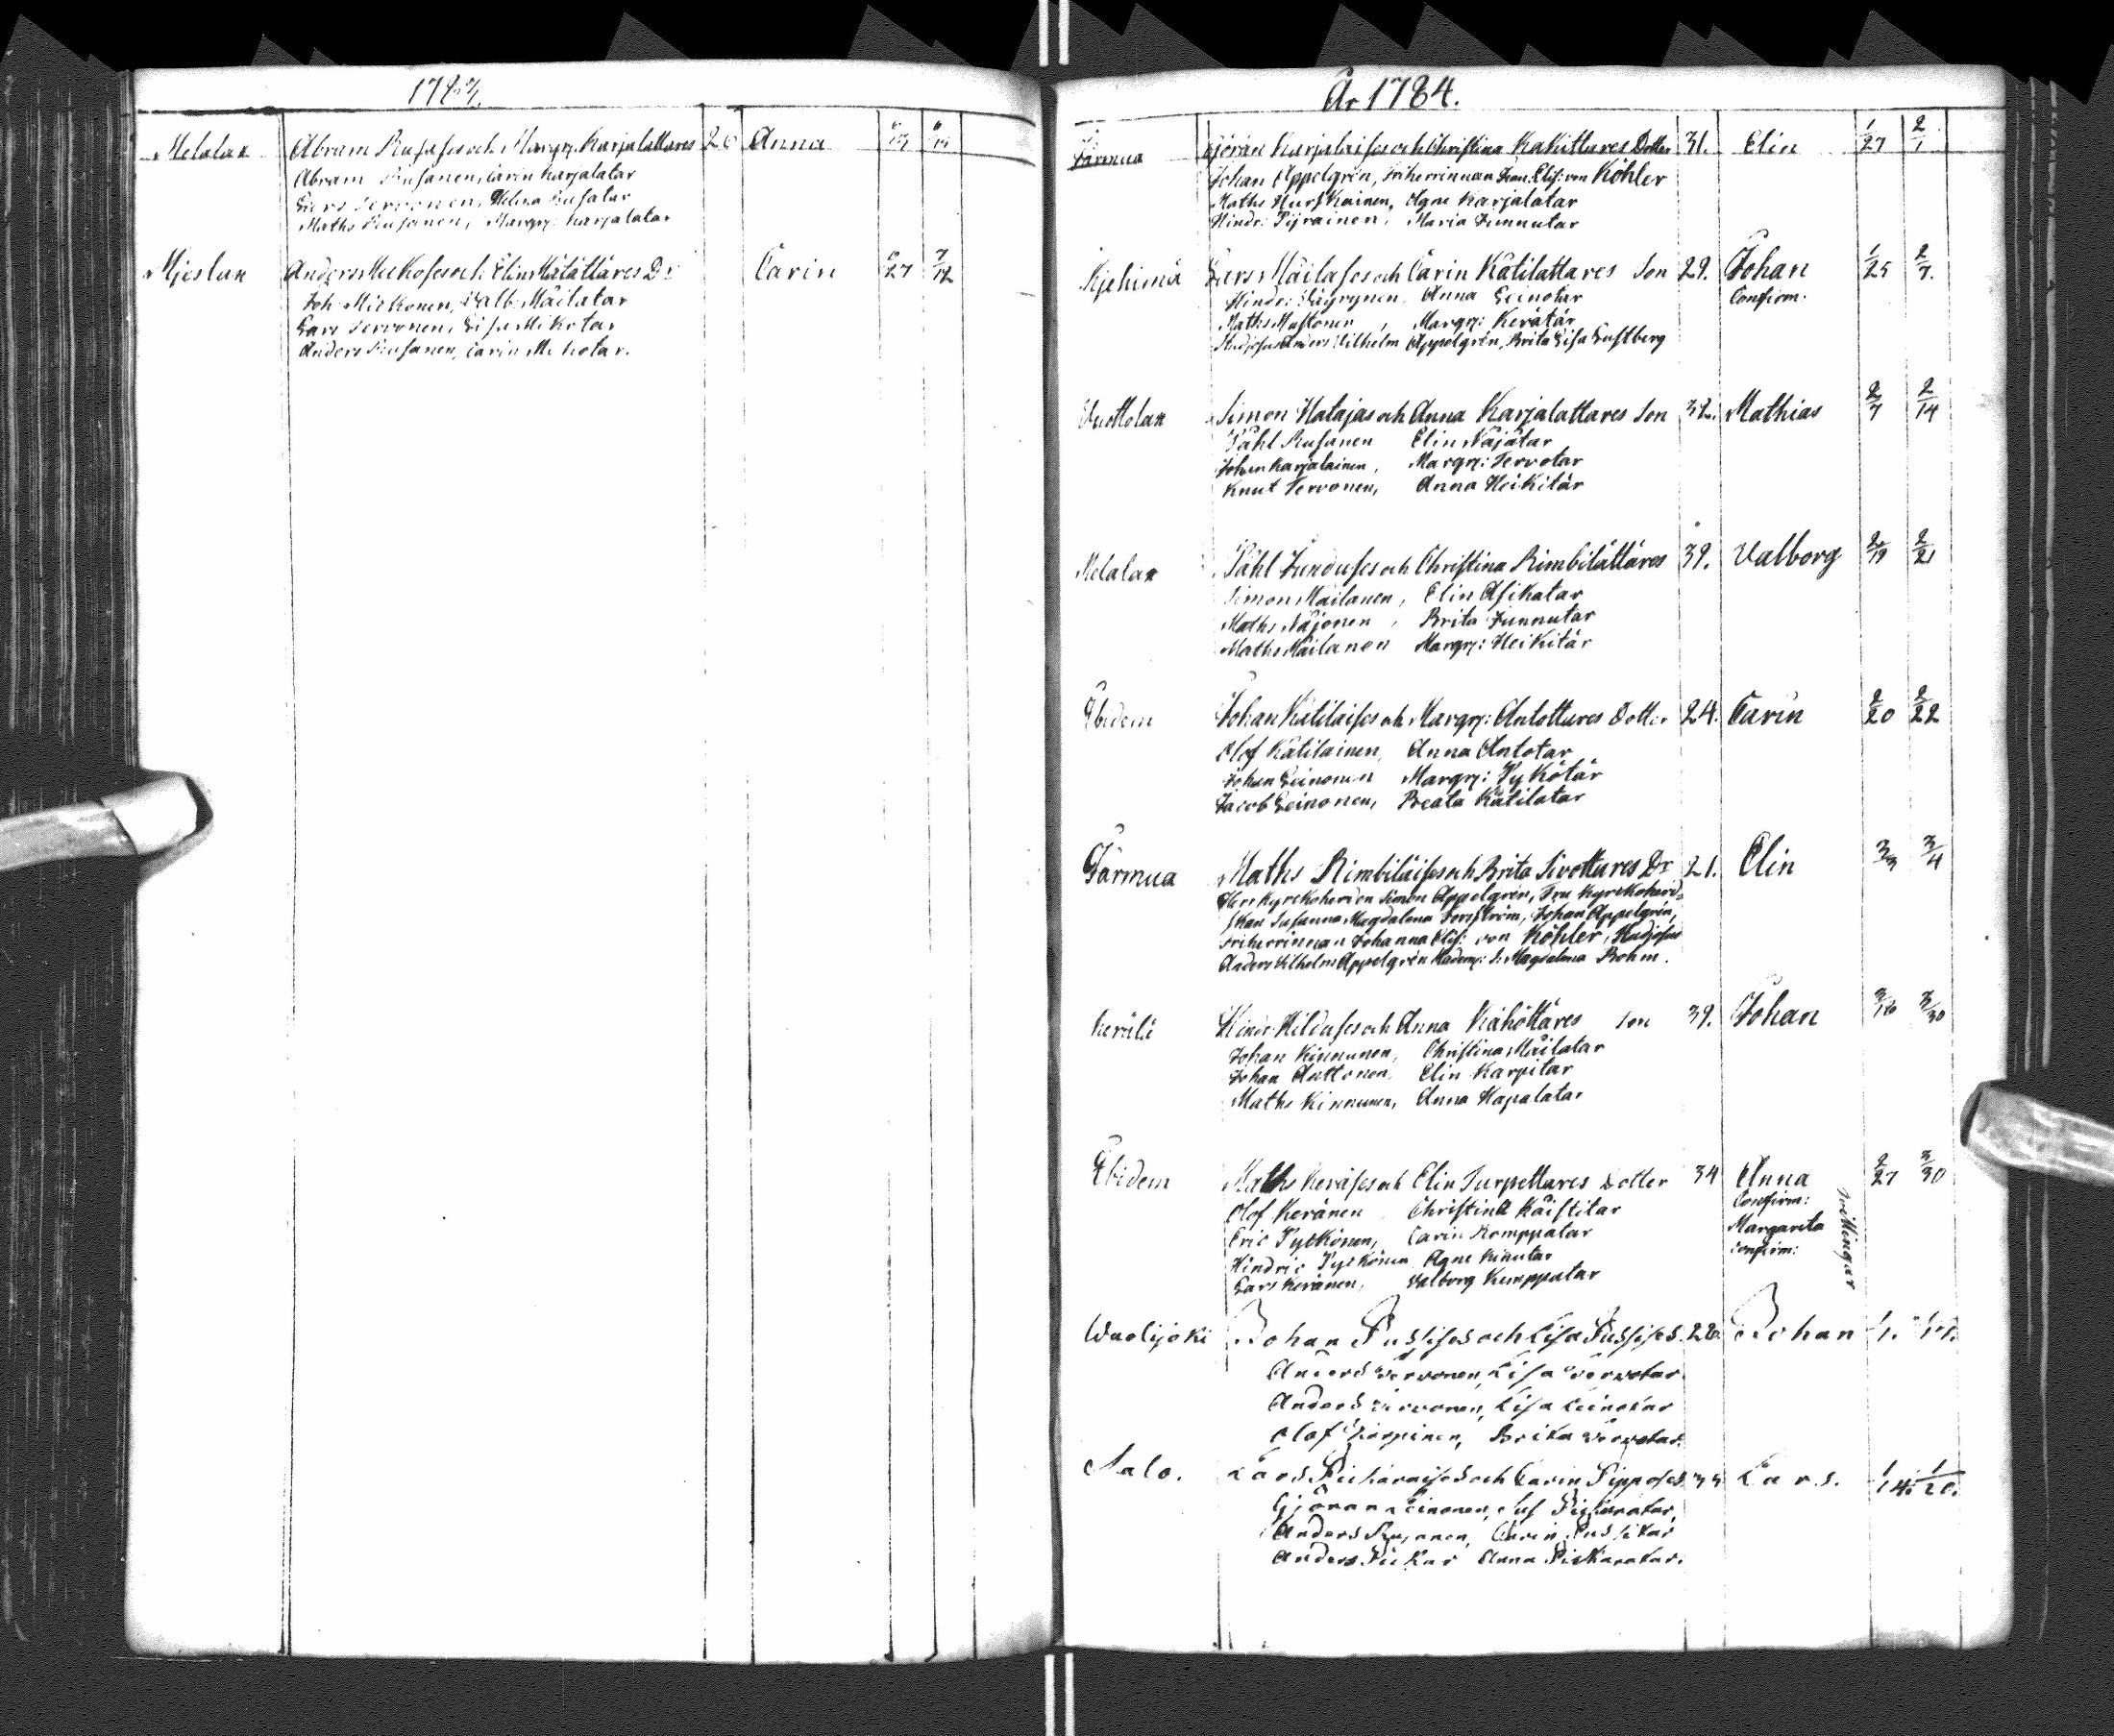 Melalax Abram Rusases och Margr: Karjalattares 26 Anna
Abram Rusanen, Carin Karjalatar
Lars Tervonen, Helena Rusatar
Maths Rusanen, Margr: Karjalatar
Mjeslax Anders Mickoses och Elin Määtättäres Dr Carin 6/27 7/12
Joh. Mickonen, Valb. Mäilatar
Lars Tervonen, Lisa Mikotar
Anders Rusanen, Carin Mikotar.
År 1784.
Järmua Göran Karjalaises och Christina Kakittares Dotter 31. Elin 1/27 2/1
Johan Appelgrén, Friherrinnan Joan. Elis: von Köhler
Maths Hurskainen, Agne Karjalatar
Hindr: Pyrainen, Maria Junnutar
Lars Mäilases och Carin Kätilattares Son 29. Johan 1/25 2/7.
Hindr: Anna Leinotar Confirm.
Maths Mustonen, Margr: Kerätär
Studiosus Anders Vilhelm Appelgrén, Brita Lisa Lustberg
Vuottolax Simon Hatajas och Anna Karjalattares Son 32. Mathias 2/7 2/14
Påhl Rusanen Elin Näjätar
Johan Karjalainen, Margr: Tervotar
Knut Tervonen, Anna Heikitär
Melalax Påhl Junduses och Christina Rimbilättäres 39. Valborg 2/19 2/21
Simon Mäilanen, Elin Asikatar
Maths Näjonen, Brita Junnutar
Maths Mäilanen Margr: Heikitär
Ibidem Johan Kätilaises och Margr: Antottares Dotter 24. Carin 2/20 2/22
Olof Kätilainen, Anna Antotar
Johan Leinonen Margr: Pykötär
Jacob Leinonen, Beata Kätilatar
Järmua Maths Rimbiläises och Brita Sivottares Dr 21. Elin 3/3 3/4
Herr Kyrckoherden Simon Appelgrén, Fru Kyrckoherd=
skan Susanna Magdalena Forsström, Johan Appelgrén,
Friherrinnan Johanna Elis: von Köhler, Studiosus
Anders Vilhelm Appelgrén Madem: S. Magdalena Bohm.
Kerälä Hindr Hilduses och Anna Kähöttäres Son 39. Johan 3/30
Johan Kinnunen, Christina Mäilatar
Johan Anttonen, Elin Karpitar
Maths Kinnunen, Anna Hapalatar
Ibidem Maths Keräses och Elin Turpettares Dotter 34 Anna 2/27 3/30
Olof Keränen Christina Käistitar Confirm:
Eric Pyckönen, Carin Komppatar Margareta
Hindric Pyckönen Agne Kinutar Confirm:
Lars Keränen, Valborg Kemppatar
Tvillingar
Wuolijoki Johan Pussises och Lisa Pussises. 28. Johan
Anders Tervonen, Lisa Tervotar.
Anders Tervonen, Lisa Leinotar
Olof Karpinen, Brita Tervotar.
Salo. Lars Pickaraises och Carin Pipposes. 33 Lars. 1/14. 1/20.
Gjöran Leinonen, Pickaratar,
Anders Rusanen, Carin Pussitar
Anders Pickar Anna Pickaratar.